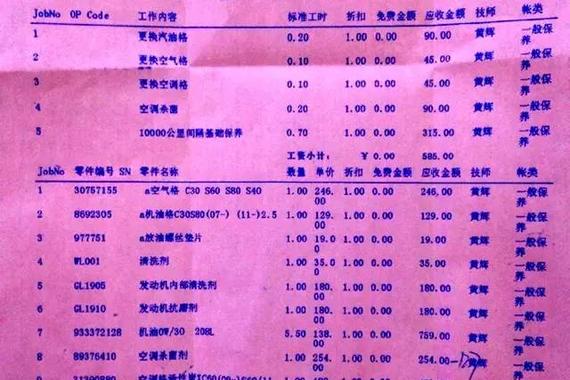 JobNo OP Code 工作内容 标准工时 折扣 免费金额 应收金额 技师 帐类
1 更换汽油格 0.20 1.00 0.00 90.00 黄辉 一般保养
2 更换空气格 0.10 1.00 0.00 45.00 黄辉 一般保养
3 更换空调格 0.10 1.00 0.00 45.00 黄辉 一般保养
4 空调杀菌 0.20 1.00 0.00 90.00 黄辉 一般保养
5 10000公里间隔基础保养 0.70 1.00 0.00 315.00 黄辉 一般保养
工资小计: ¥ 0.00 585.00
JobNo 零件编号 SN 零件名称 数量 单价 折扣 免费金额 应收金额 技师 帐类
1 30757155 a空气格 C30 S60 S80 S40 1.00 246.00 1.00 0.00 246.00 黄辉 一般保养
2 8692305 a机油格C30S80(07-) (11-)2.5 1.00 129.00 1.00 0.00 129.00 黄辉 一般保养
3 977751 a放油螺丝垫片 1.00 19.00 1.00 0.00 19.00 黄辉 一般保养
4 WL001 清洗剂 1.00 35.00 1.00 0.00 35.00 黄辉 一般保养
5 GL1905 发动机内部清洗剂 1.00 180.00 1.00 0.00 180.00 黄辉 一般保养
6 GL1910 发动机抗磨剂 1.00 180.00 1.00 0.00 180.00 黄辉 一般保养
7 933372128 机油0W/30 208L 5.50 138.00 1.00 0.00 759.00 黄辉 一般保养
8 89376410 空调杀菌剂 1.00 254.00 1.00 0.00 254.00 黄辉 一般保养